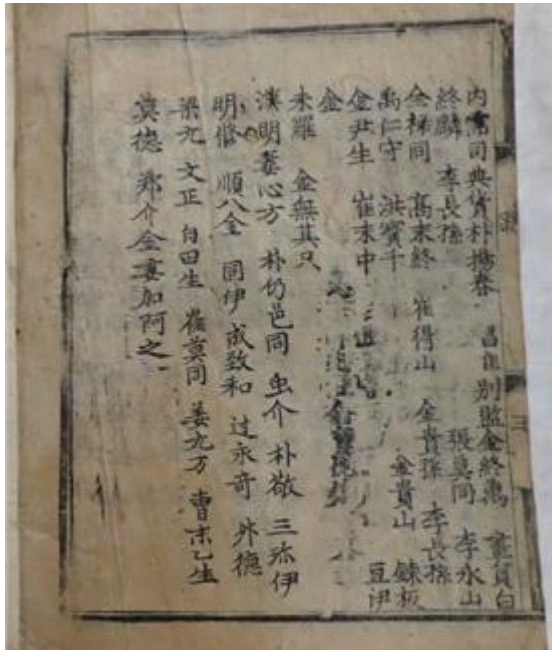 內需司典貨朴揚春 昌 別監金終禹 畫員白
終麟 李長孫 張莫同 李永山
金祿同 高末終 崔得山 金貴孫 李長孫
禹仁守 洪寶千 金貴山 鍊板
金尹生 崔末中 豆伊
金
末羅 金無其只
淡明 心方 朴仍邑同 虫介 朴敬 三冰伊
明修 順八金 同伊 成致和 过永奇 外德
梁九 文正 自田生 崔莫同 姜九万 曺末乙生
莫德 鄭介金 加阿之